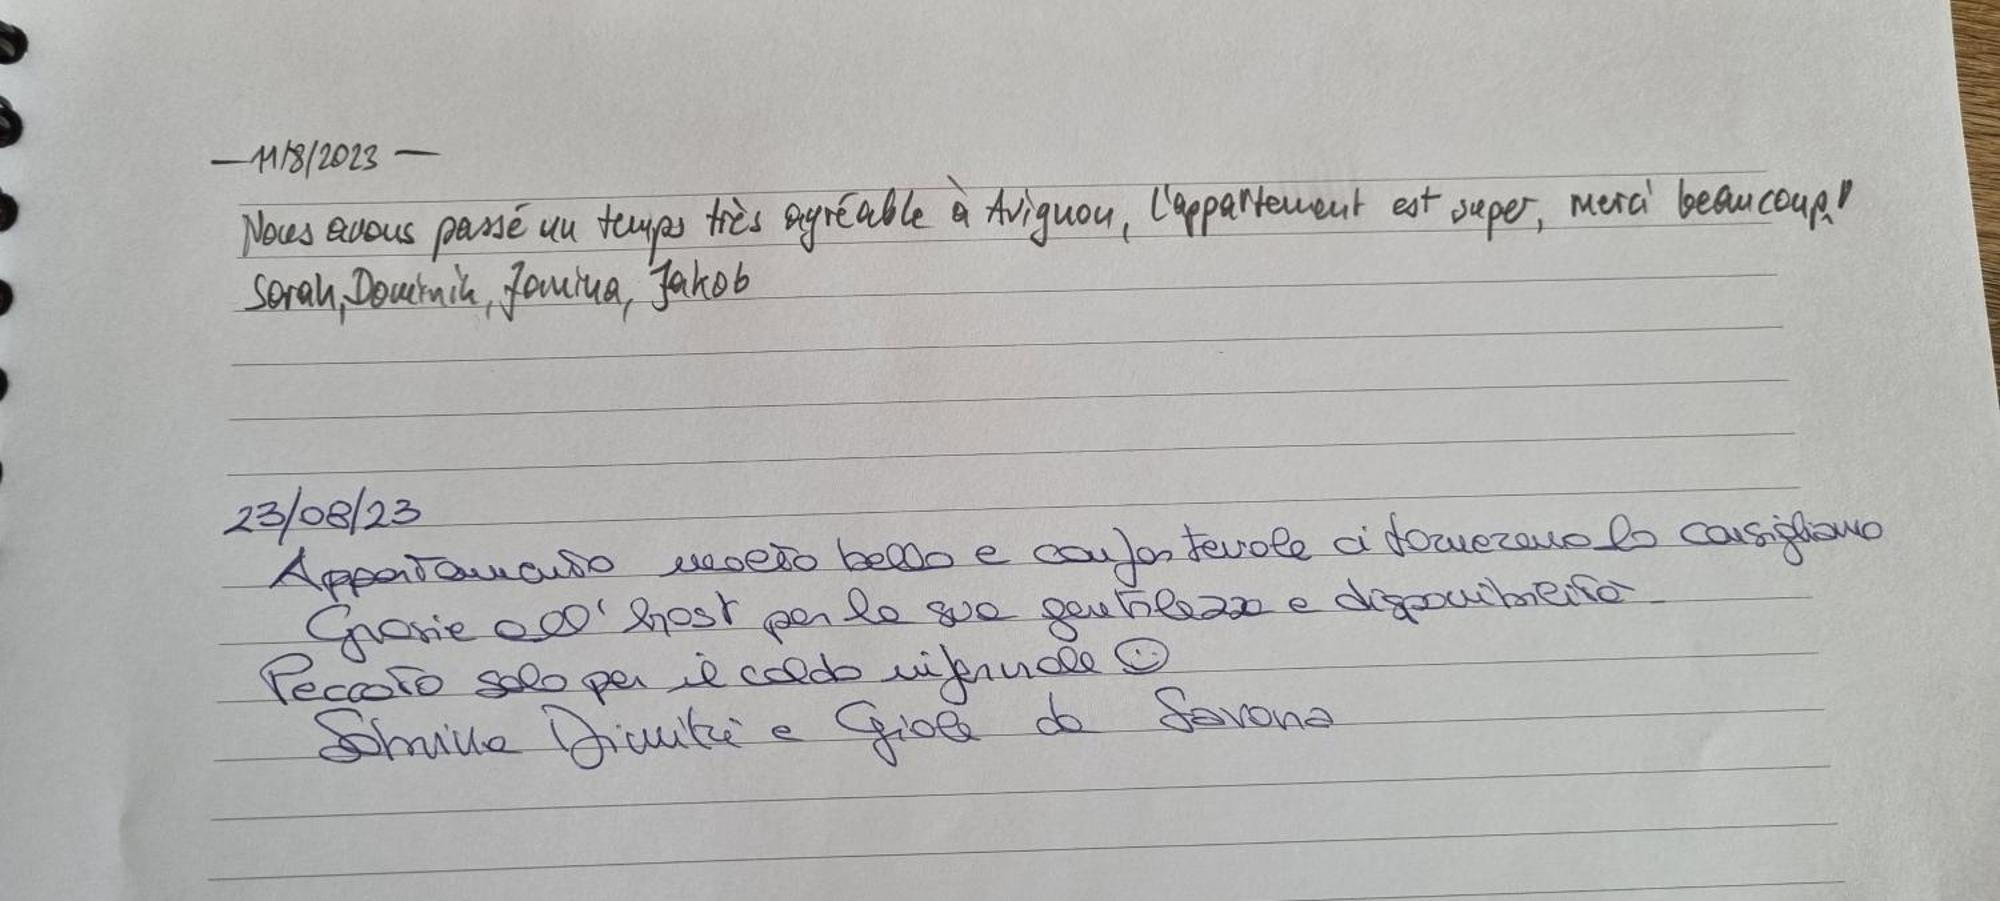 — 11/8/2023 —
Nous avons passé un temps très agréable à Avignon, l'appartement est super, merci beaucoup!
Sarah, Dominik, Jamina, Jakob
23/08/23
Appartamento molto bello e confortevole ci torneremo lo consigliamo
Grazie all'host per la sua gentilezza e disponibilità
Peccato solo per il caldo infernale ☺
Dimitri e Gioele da Savona